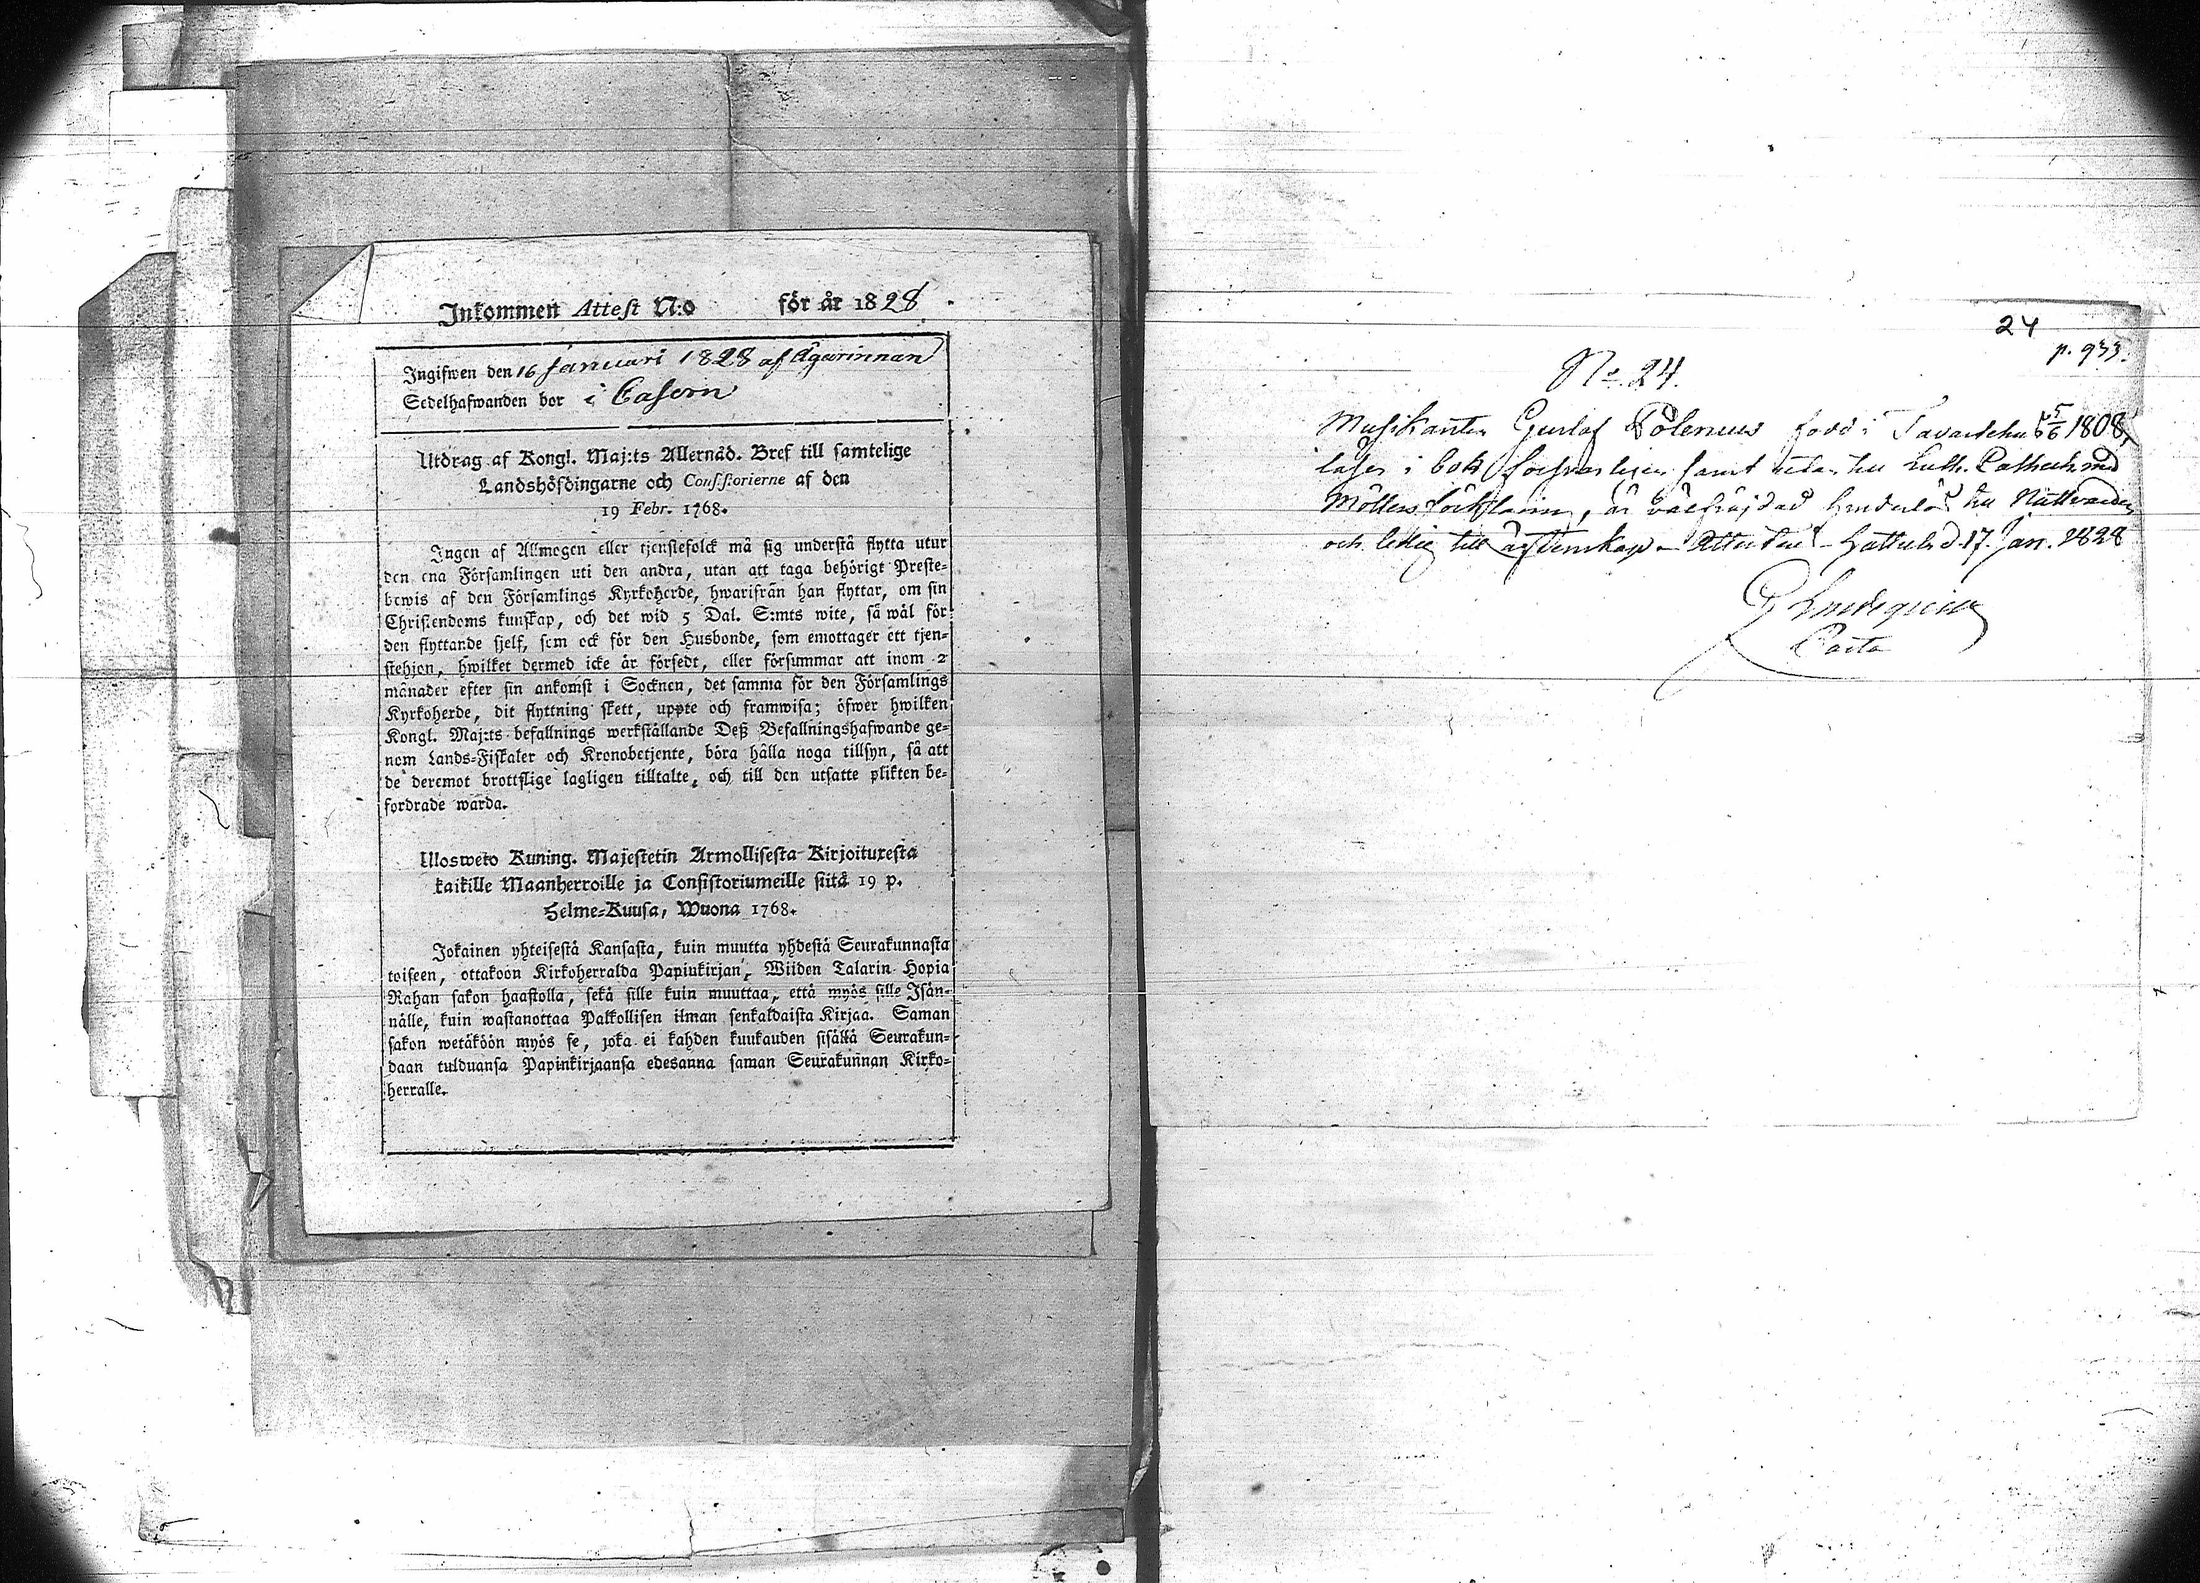 Inkommen Attest N:o för år 1828.
Ingifwen den 16 Januari 1828 af Ägarinnan
Sedelhafwanden bor i Casern
Utdrag af Kongl. Maj:ts Allernåd. Bref till samtelige
Landshöfdingarne och Consistorierne af den
19 Febr. 1768.
Ingen af Allmogen eller tjenstefolck må sig understå flytta utur
den ena Församlingen uti den andra, utan att taga behörigt Preste-
bewis af den Församlings Kyrkoherde, hwarifrån han flyttar, om sin
Christendoms kunskap, och det wid 5 Dal. S:mts wite, så wäl för
den flyttande sjelf, som ock för den Husbonde, som emottager ett tjen-
stehjon, hwilket dermed icke är försedt, eller försummar att inom 2
månader efter sin ankomst i Socknen, det samma för den Församlings
Kyrkoherde, dit flyttning skett, uppte och framwisa; öfwer hwilken
Kongl. Maj:ts befallnings werkställande Deß Befallningshafwande ge-
nom Lands-Fiskaler och Kronobetjente, böra hålla noga tillsyn, så att
de deremot brottslige lagligen tilltalte, och till den utsatte plikten be-
fordrade warda.
Ulosweto Kuning. Majestetin Armollisesta Kirjoituxesta
kaikille Maanherroille ja Consistoriumeille siitä 19 p.
Helme-Kuusa, Wuona 1768.
Jokainen yhteisestä Kansasta, kuin muutta yhdestä Seurakunnasta
toiseen, ottakoon Kirkoherralda Papinkirjan, Wiiden Talarin Hopia
Rahan sakon haastolla, sekä sille kuin muuttaa, että myös sille Isän-
nälle, kuin wastanottaa Palkollisen ilman senkaldaista Kirjaa. Saman
sakon wetäköön myös se, joka ei kahden kuukauden sisällä Seurakun-
daan tulduansa Papinkirjaansa edesanna saman Seurakunnan Kirko-
herralle.
24
p. 933.
No 24.
Musikanten Gustaf Polenius född i Tavastehus 25/6 1808,
läser i bok försvarligen samt utan till Luth. Catheches med
Möllers förklaring, är välfräjdad hinderlös till Nattvarden
och ledig till äktenskap. Attesteras Hattula d. 17. Jan. 1828